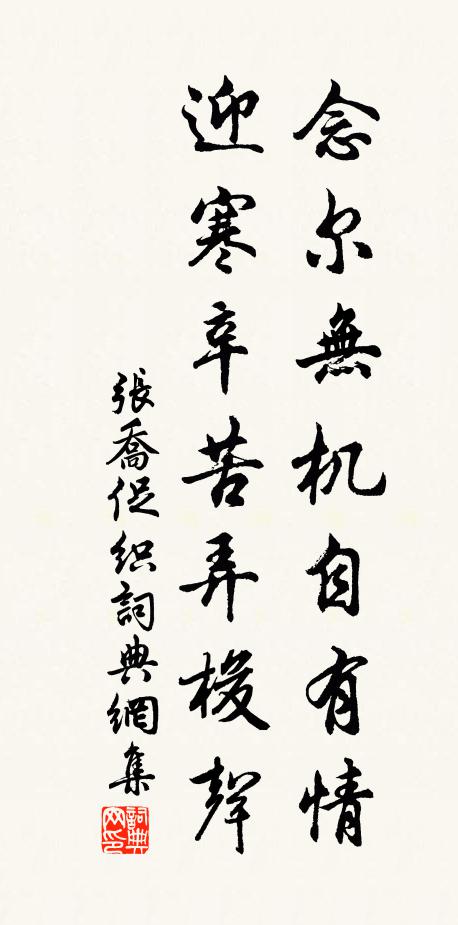 念尔無机自有情
迎寒辛苦弄梭聲
張喬促织詞典網集
詞典网印